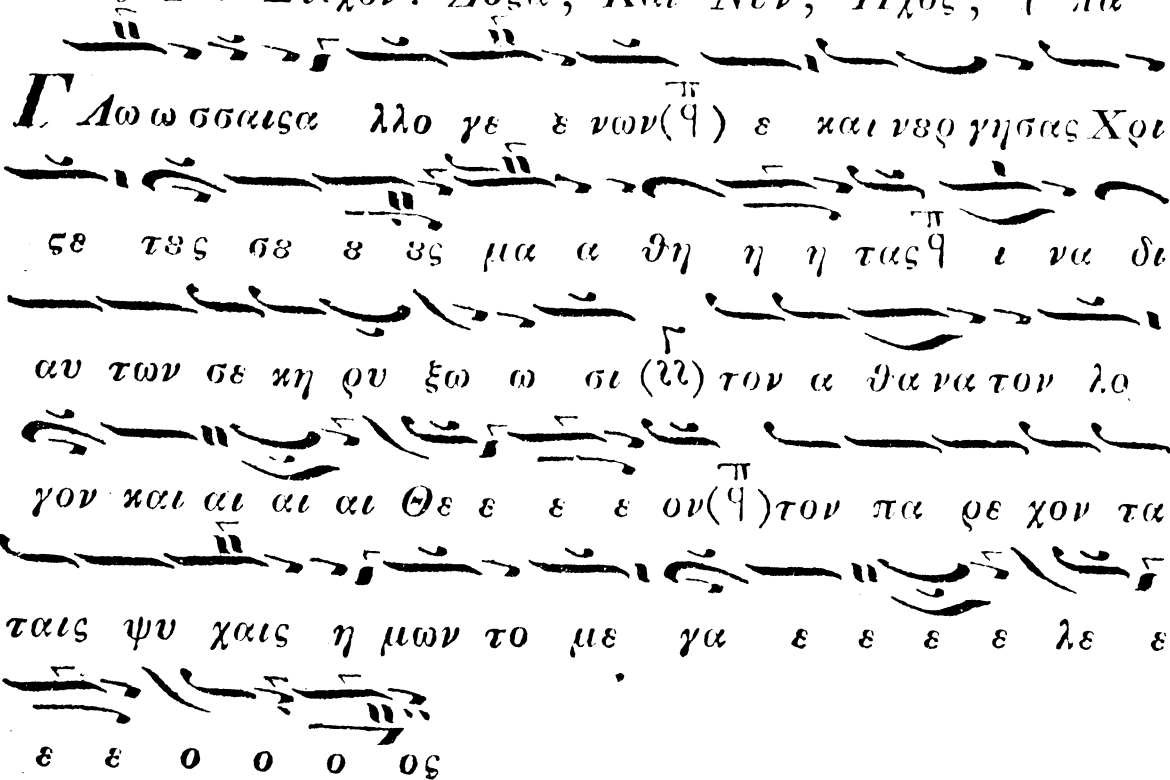 Στιχον. Δοξα, Και Νυν, Ηχος, πα
Γ Λω ω σσαις α λλο γε ε νων (π q) ε και νȣρ γησας Χρι
ϛε τȣς σȣ ȣ ȣς μα α θη η η τας π q ι να δι
αυ των σε κη ρυ ξω ω σι (Γ ϩϩ) τον α θα να τον λο
γον και αι αι αι Θε ε ε ε ον (π q) τον πα ρε χον τα
ταις ψυ χαις η μων το με γα ε ε ε ε λε ε
ε ε ο ο ο ος